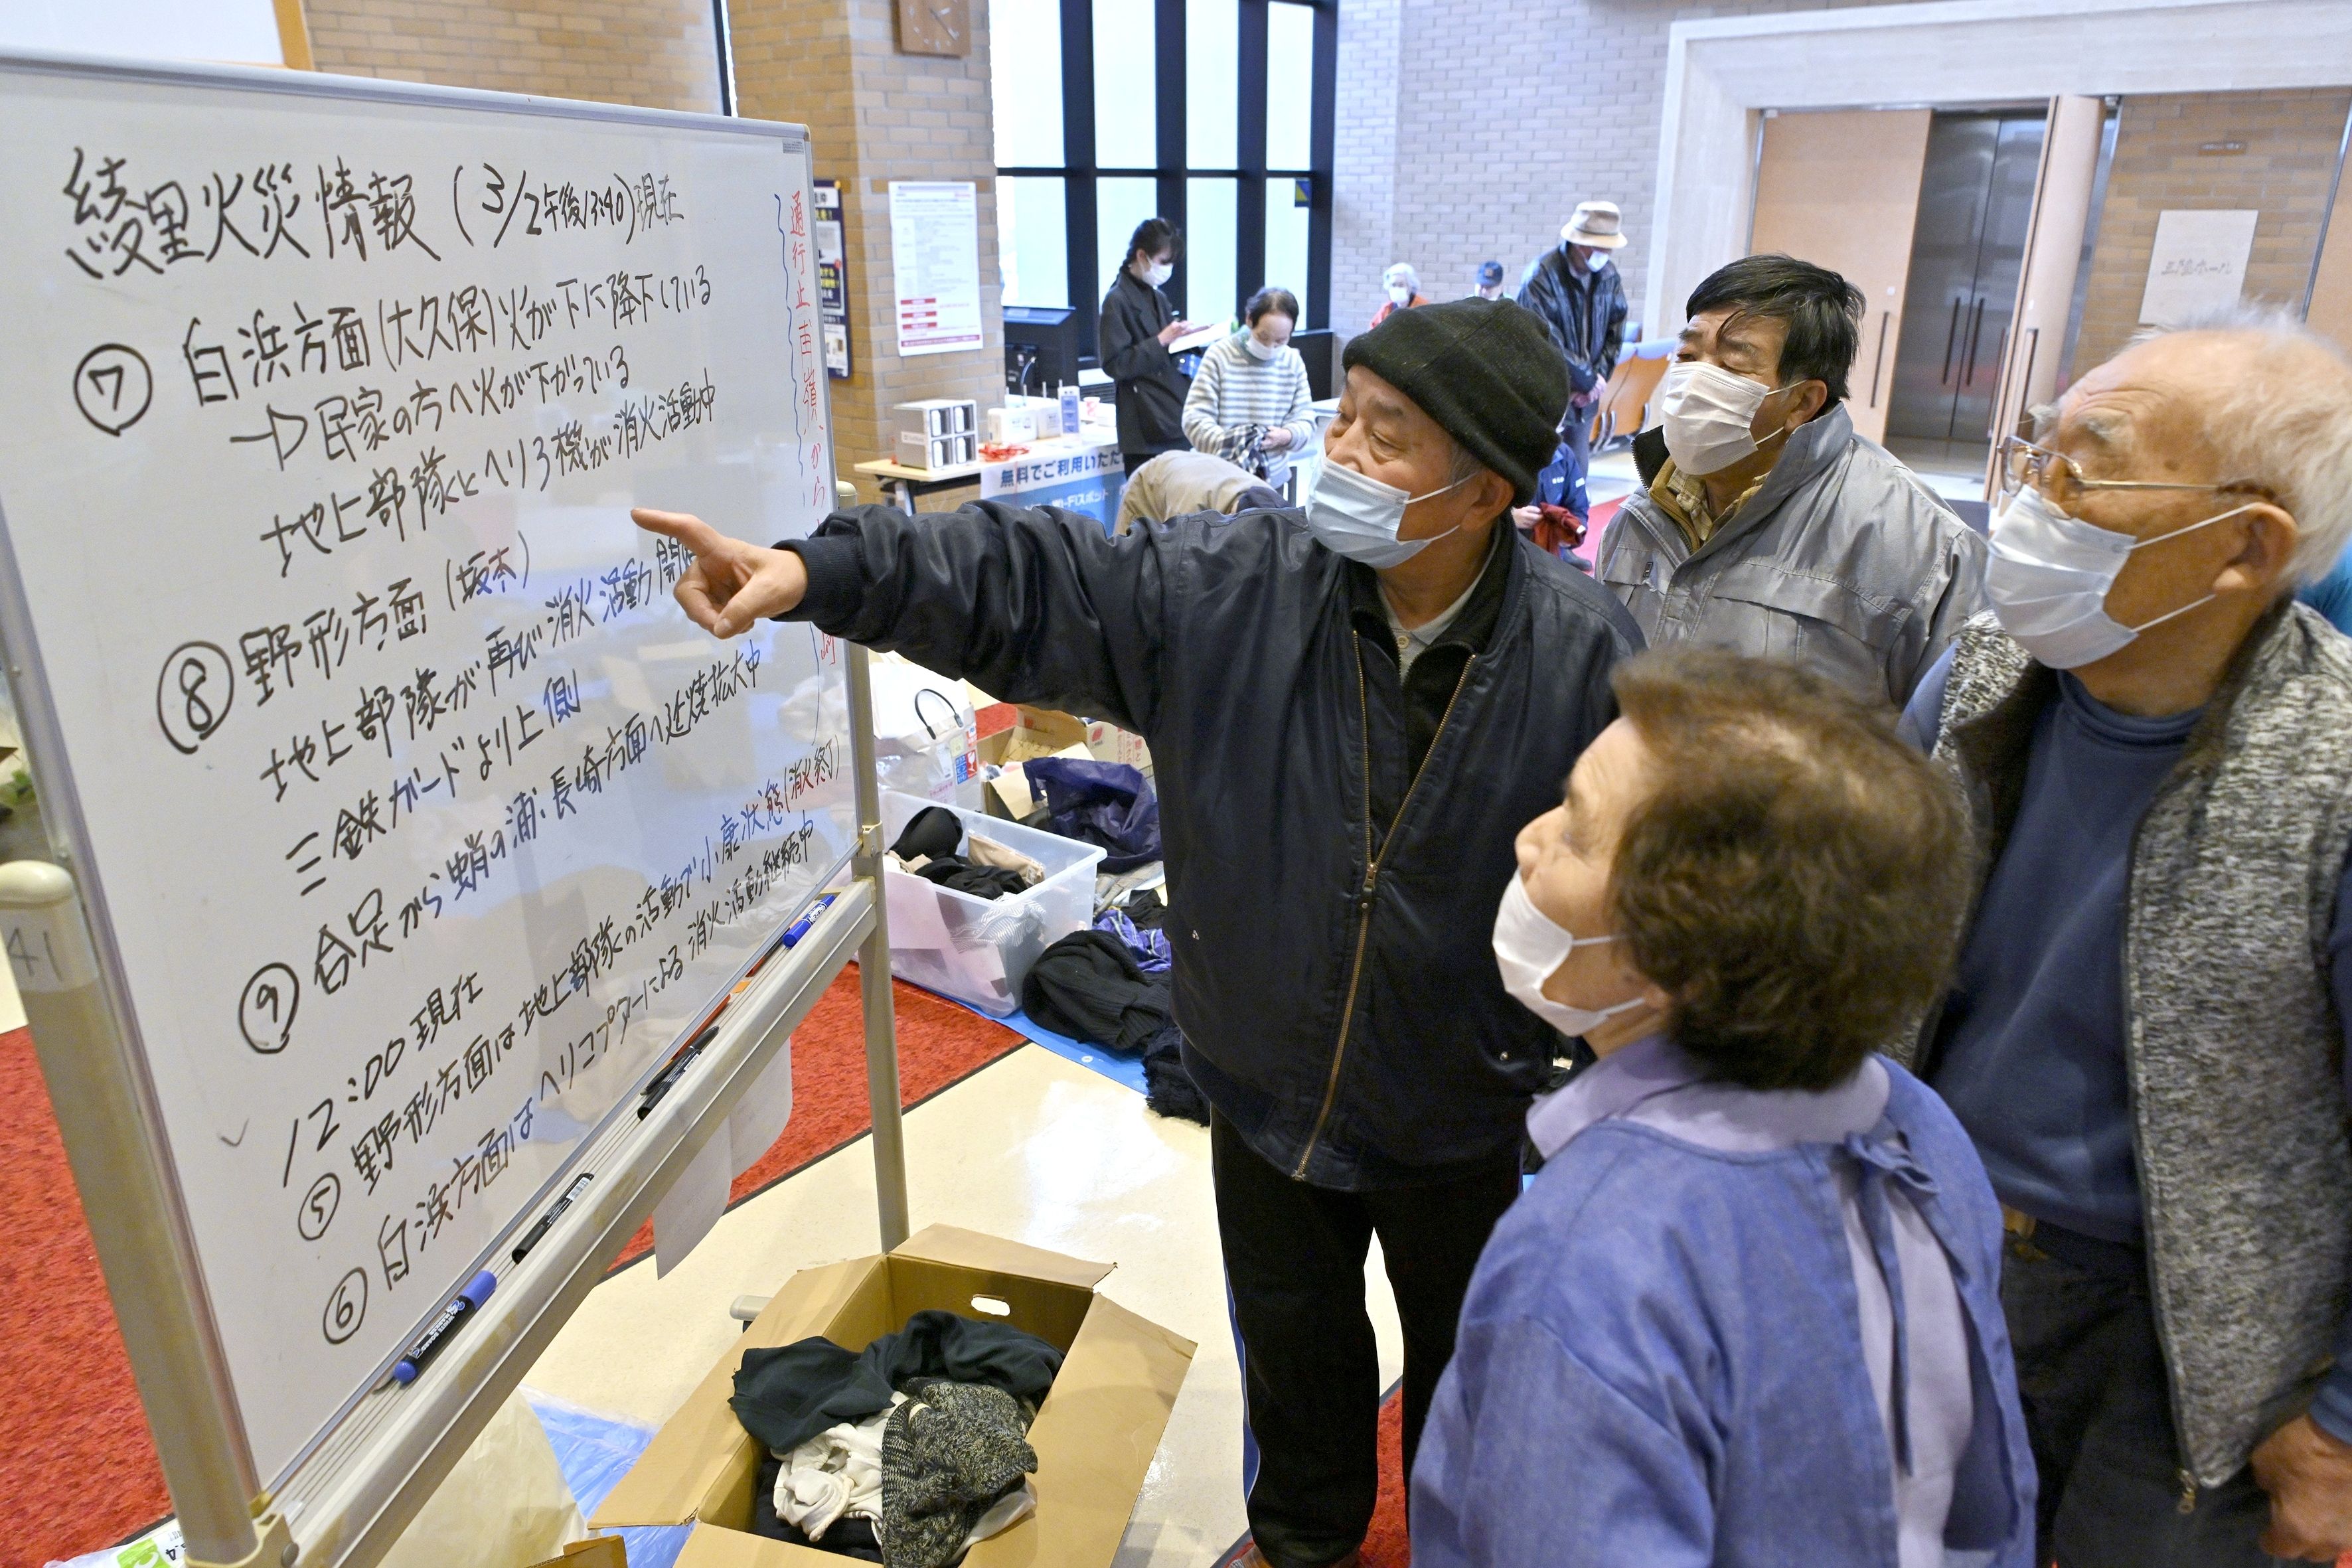 綾里火災情報 (3/2午後13:40)現在
⑦ 白浜方面(大久保)火が下に降下している
→民家の方へ火が下がっている
地上部隊とヘリ3機が消火活動中
⑧ 野形方面(坂本)
地上部隊が再び消火活動開
三鉄ガードより上側
⑨ 合足から蛸の浦・長崎方面へ延焼拡大中
12:00現在
⑤ 野形方面は地上部隊の活動で小康状態(消火終了)
⑥ 白浜方面はヘリコプターによる消火活動継続中
通行止
から
無料でご利用いただ
41